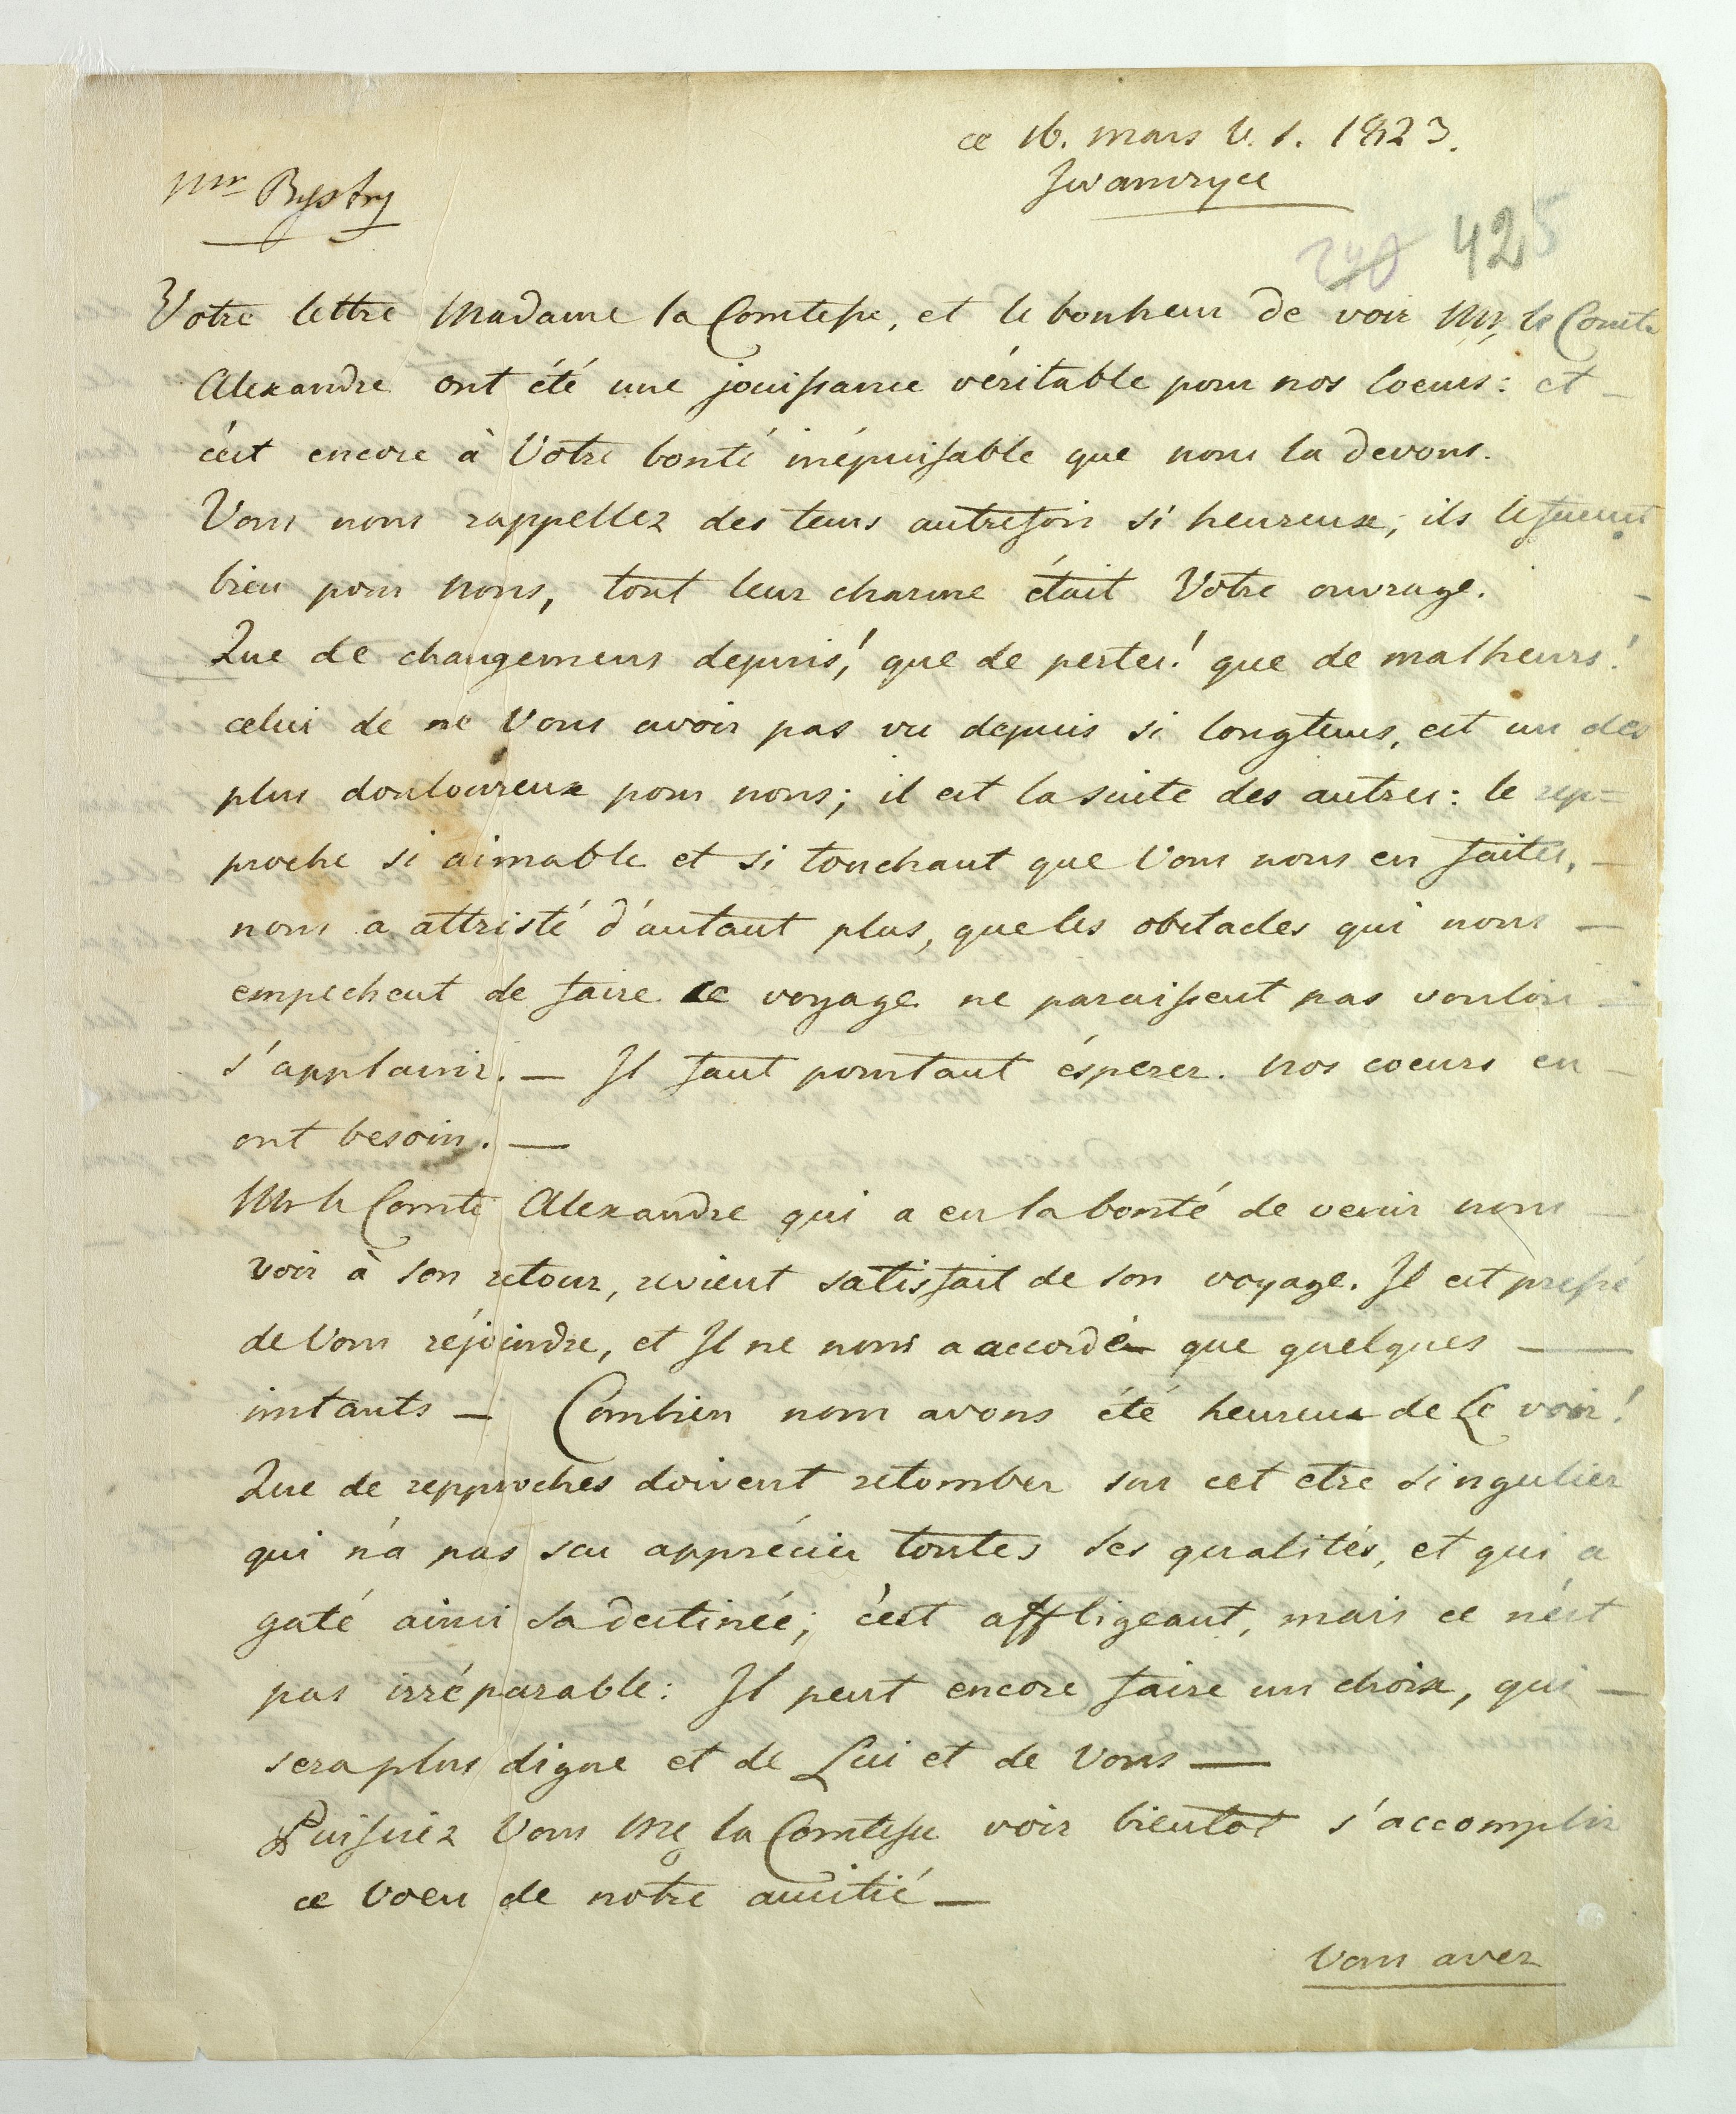 ce 16. mars v. s. 1823.
Iwanczyce
Mr Bystry
240 425
Votre lettre Madame la Comtesse, et le bonheur de voir Mr, le Comte
Alexandre ont été une jouissance véritable pour nos coeurs: et –
c'est encore à Votre bonté inépuisable que nous la devons.
Vous nous rappellez des tems autrefois si heureux; ils le furent
bien pour nous, tout leur charme était Votre ouvrage.
Que de changemens depuis! que de pertes! que de malheurs!
celui de ne Vous avoir pas vu depuis si longtems, est un des
plus douloureux pour nous; il est la suite des autres: le rep=
proche si aimable et si touchant que Vous nous en faites, –
nous a attristé d'autant plus, que les obstacles qui nous –
empechent de faire ce voyage ne paraissent pas vouloir –
s'applanir. — Il faut pourtant éspérer. Nos coeurs en –
ont besoin. —
Mr le Comte Alexandre qui a eu la bonté de venir nous –
voir à son retour, revient satisfait de son voyage. Il est pressé
de Vous réjoindre, et Il ne nous a accordé que quelques —
instants — Combien nous avons été heureux de Le voir!
Que de repproches doivent retomber sur cet etre singulier
qui n'a pas scu apprécier toutes ses qualités, et qui a
gaté ainsi sa destinée; c'est affligeant, mais ce n'est
pas irréparable: Il peut encore faire un choix, qui –
sera plus digne et de Lui et de Vous —
Puissiez Vous Me la Comtesse voir bientot s'accomplir
ce voeu de notre amitié —
Vous avez